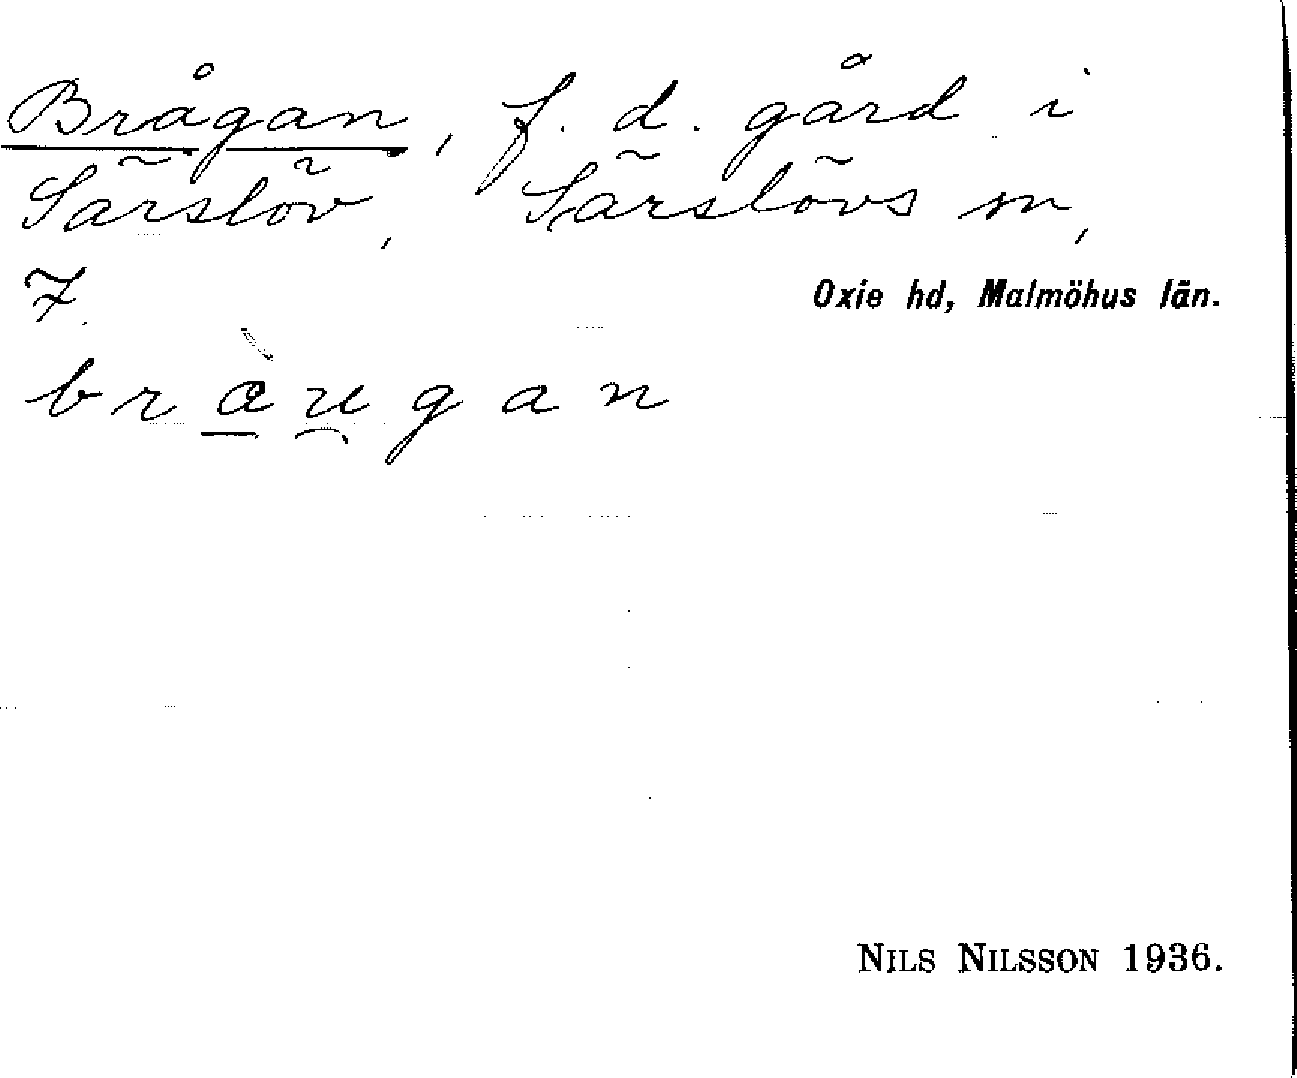 Brågan, f. d. gård i
Särslöv, Särslövs sn,
7.
Oxie hd, Malmöhus län.
bràu̯gan
NILS NILSSON 1936.